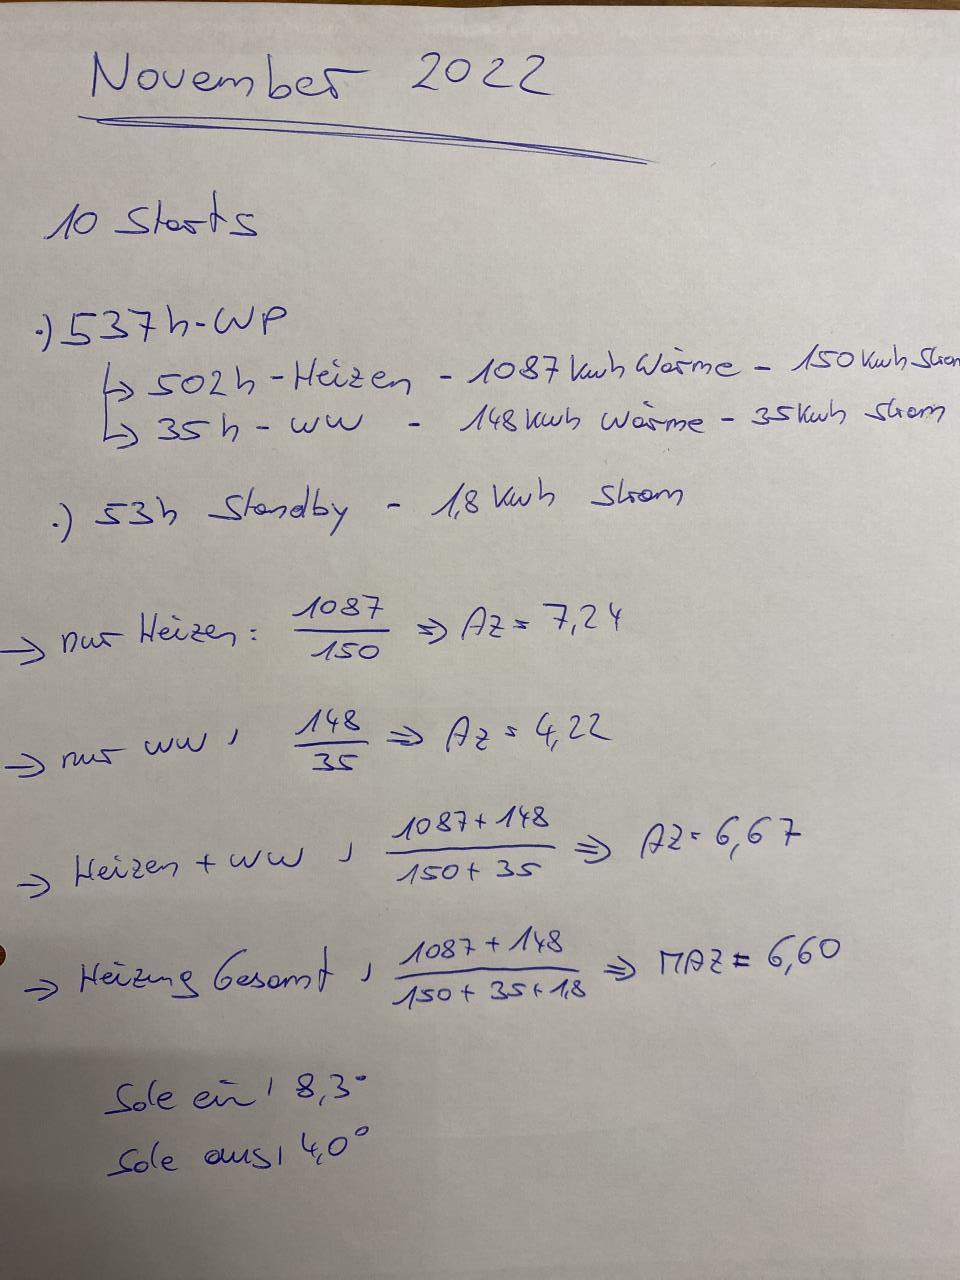 November 2022
10 Starts
•) 537h-WP
↳ 502h - Heizen - 1087 kwh Wärme - 150 kwh Strom
↳ 35h - WW - 148 kwh Wärme - 35 kwh Strom
•) 53h Standby - 1,8 kwh Strom
→ nur Heizen: 1087/150 ⇒ AZ = 7,24
→ nur WW: 148/35 ⇒ AZ = 4,22
→ Heizen + WW: 1087+148/150+35 ⇒ AZ = 6,67
→ Heizung Gesamt: 1087+148/150+35+1,8 ⇒ MAZ = 6,60
Sole ein: 8,3°
Sole aus: 4,0°